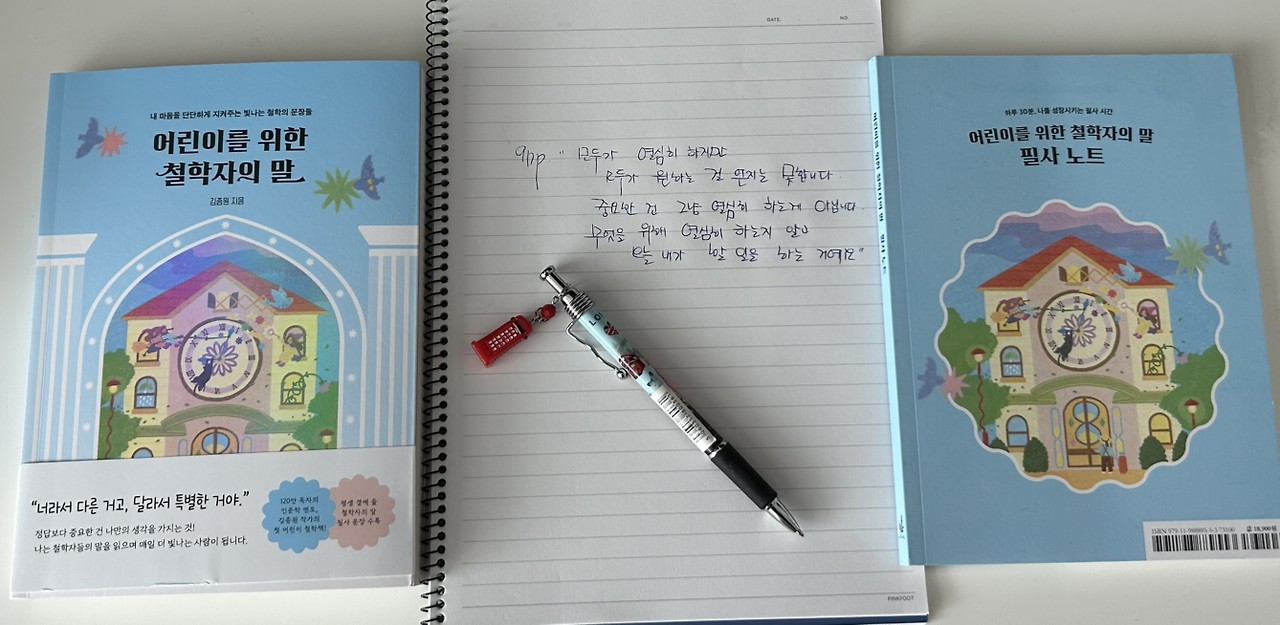 내 마음을 단단하게 지켜주는 빛나는 철학의 문장들
어린이를 위한
철학자의 말
김종원 지음
“너라서 다른 거고, 달라서 특별한 거야.”
정답보다 중요한 건 나만의 생각을 가지는 것!
나는 철학자들의 말을 읽으며 매일 더 빛나는 사람이 됩니다.
120만 독자의
인문학 멘토,
김종원 작가의
첫 어린이 철학책!
평생 곁에 둘
철학자의 말
필사 문장 수록
DATE.
NO.
91p. “ 모두가 열심히 하지만
모두가 원하는 걸 얻지는 못합니다.
중요한 건 그냥 열심히 하는게 아닙니다.
무엇을 위해 열심히 하는지 알고
오늘 내가 할 일을 하는 거예요”
LO
PINKFOOT
어린이를 위한 철학자의 말 필사 노트
하루 30분, 나를 성장시키는 필사 시간
어린이를 위한 철학자의 말
필사 노트
값 18,900원